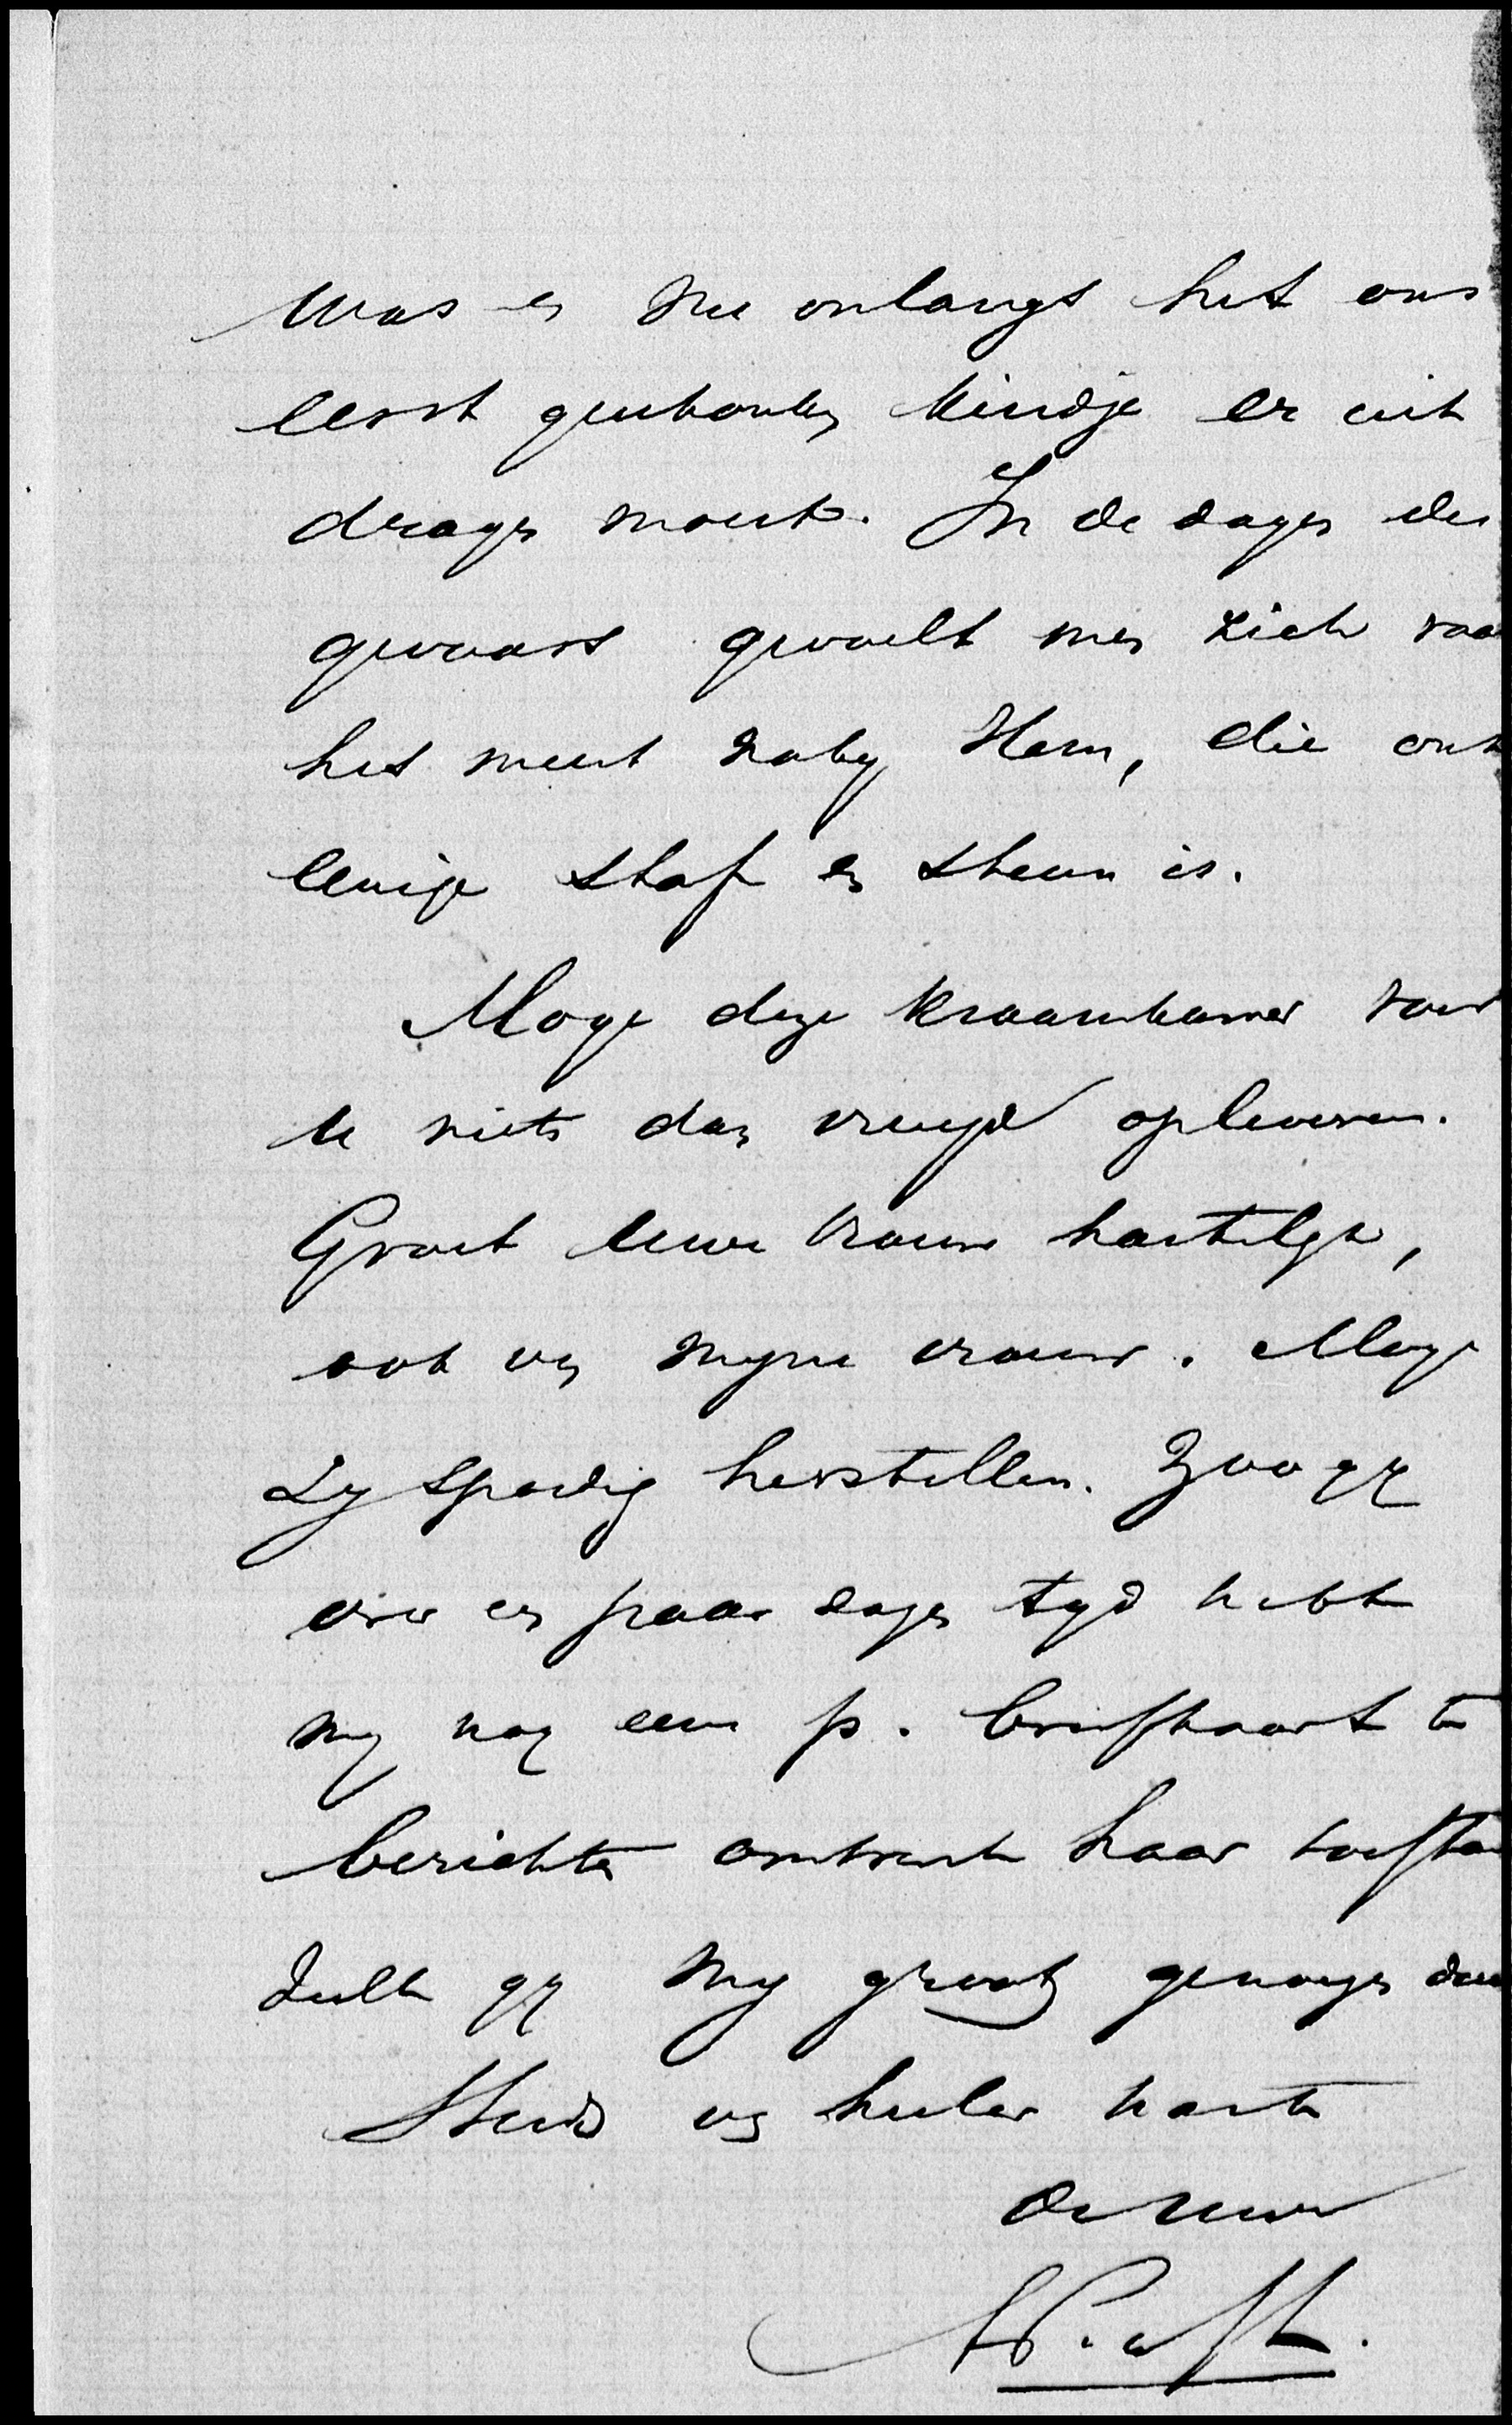 was en nu onlangs het ons
eerst geschonken kindje er uit
dragen moest. In de dagen des
gevaars gevoelt men zich vaa
het meest naby Hem, die ons
eenige staf en steun is.
Moge deze kraamkamer voor
U niets dan vreugd opleveren.
Groet Uwe vrouw hartelyk,
ook van myne vrouw. Moge
zy spoedig herstellen. Zoo gy
over een paar dagen tyd hebt
my nog eens p. briefkaart te
berichten omtrent haar toestan
zult gy my groot genoegen doen
Steeds van heeler harte
de Uwe